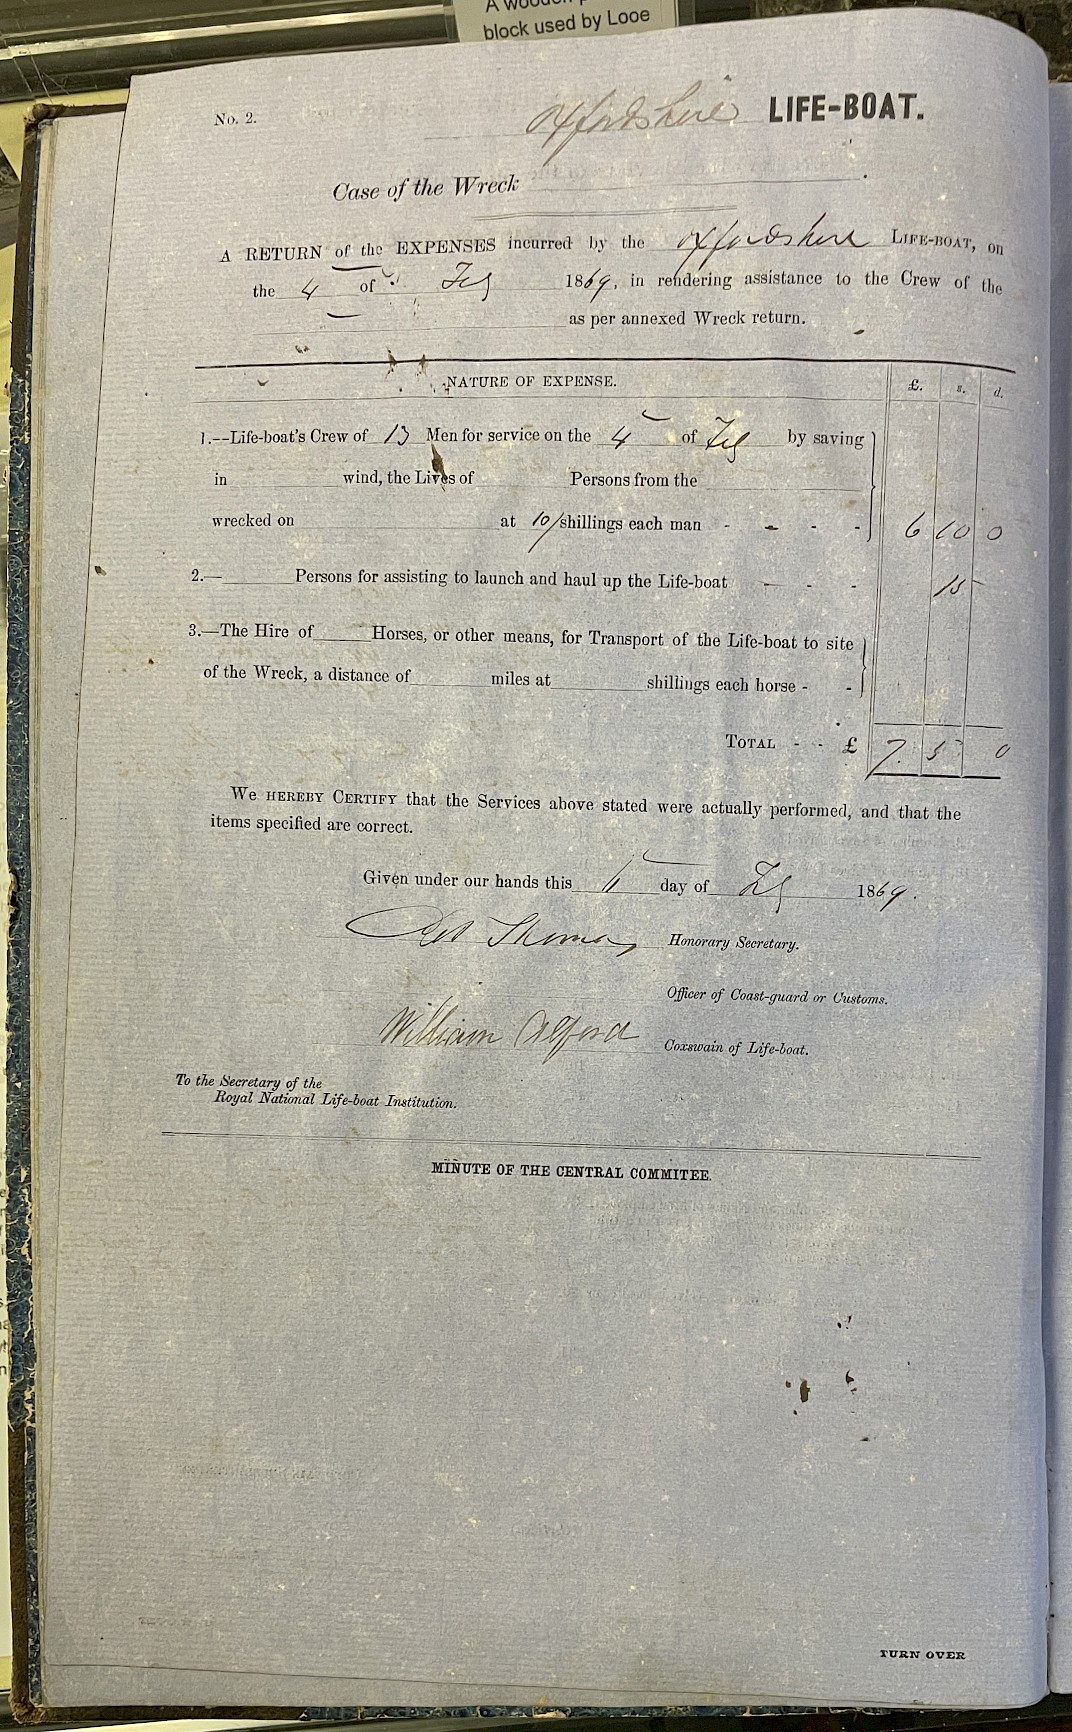 A wooden
block used by Looe
No. 2.
Oxfordshire LIFE-BOAT.
Case of the Wreck
A RETURN of the EXPENSES incurred by the Oxfordshire LIFE-BOAT, on
the 4 of Feb 1869, in rendering assistance to the Crew of the
as per annexed Wreck return.
NATURE OF EXPENSE. £. s. d.
1.--Life-boat's Crew of 13 Men for service on the 4 of Feb by saving
in wind, the Lives of Persons from the
wrecked on at 10/ shillings each man - - - - 6 10 0
2.— Persons for assisting to launch and haul up the Life-boat - - - 15 -
3.—The Hire of Horses, or other means, for Transport of the Life-boat to site
of the Wreck, a distance of miles at shillings each horse - -
TOTAL - - £ 7. 5 0
We HEREBY CERTIFY that the Services above stated were actually performed, and that the
items specified are correct.
Given under our hands this day of Feb 1869.
Thomas Honorary Secretary.
Officer of Coast-guard or Customs.
William Alford Coxswain of Life-boat.
To the Secretary of the
Royal National Life-boat Institution.
MINUTE OF THE CENTRAL COMMITEE.
TURN OVER